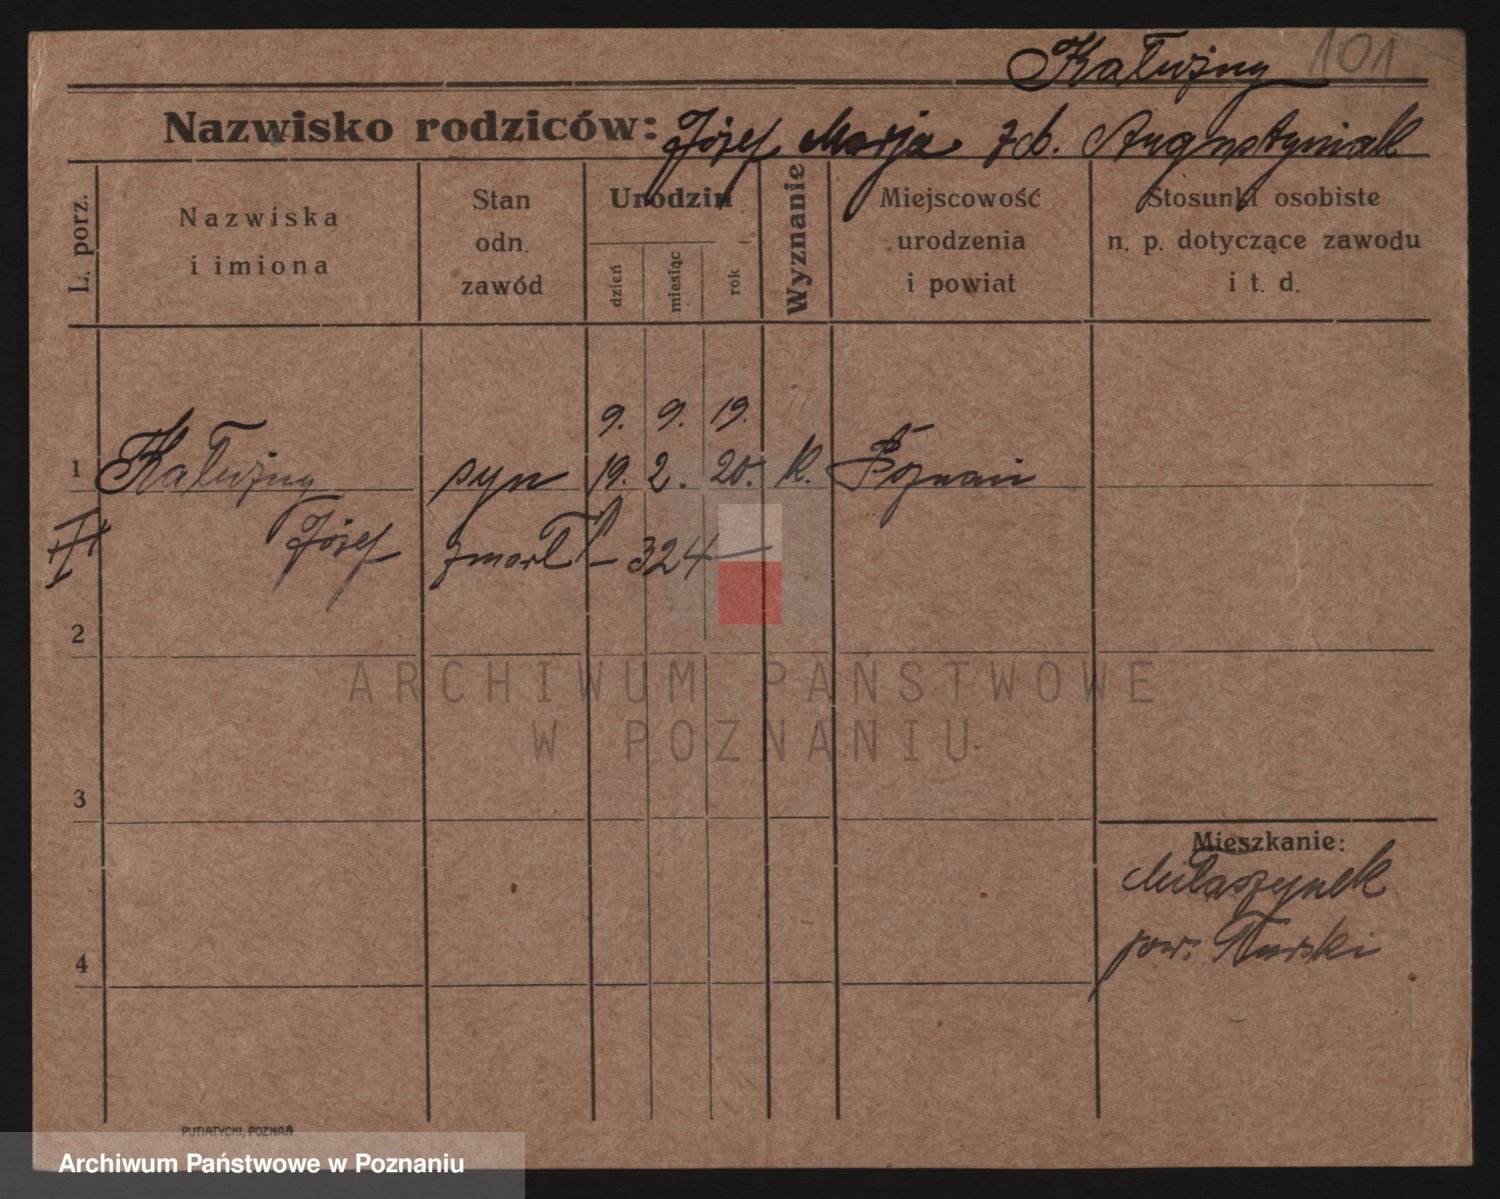 Kałużny 101
Nazwisko rodziców: Józef Marja zd. Augustyniak
L. porz.
Nazwiska
i imiona
Stan
odn.
zawód
Urodzin
dzień
miesiąc
rok
Wyznanie
Miejscowość
urodzenia
i powiat
Stosunki osobiste
n. p. dotyczące zawodu
i t. d.
9. 9. 19.
1 Kałużny syn 19. 2. 20. k. Poznań
Józef zmarł — 324 —
2
3
4
Mieszkanie:
Miłaszynek
pow. Turski
ARCHIWUM PAŃSTWOWE
W POZNANIU
PUTIATYCKI, POZNAŃ
Archiwum Państwowe w Poznaniu